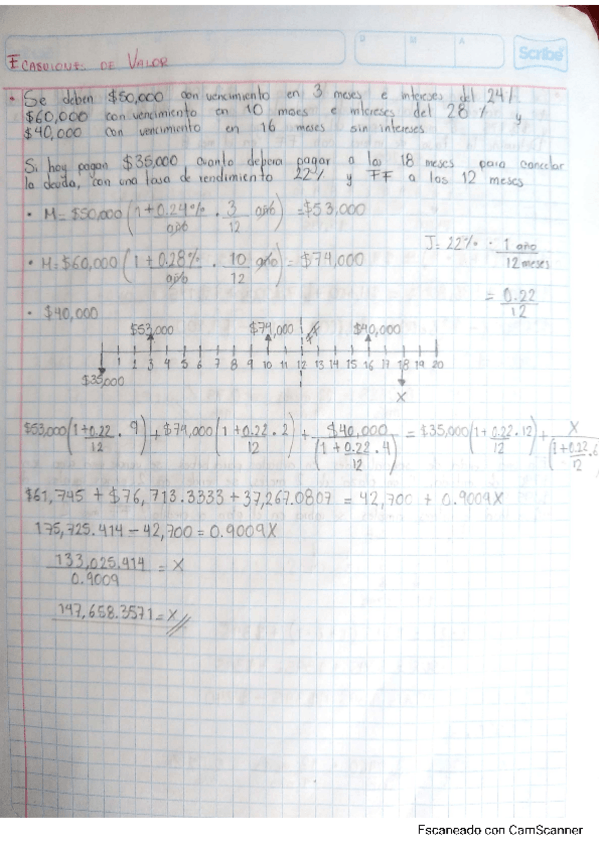 Scribe
ECASUIONES DE VALOR
• Se deben $50,000 con vencimiento en 3 meses e intereses del 24%
$60,000 con vencimiento en 10 meses e intereses del 28% y
$40,000 con vencimiento en 16 meses sin intereses
Si hoy pagan $35,000, cuanto debera pagar a los 18 meses para cancelar
la deuda, con una tasa de rendimiento 22% y FF a los 12 meses
• M = $50,000 (1+0.24%/año · 3/12 año) = $53,000
J = 22% · 1 año/12 meses
• M = $60,000 (1+0.28%/año · 10/12 año) = $74,000
= 0.22/12
• $40,000
$53,000 $74,000 $40,000
1 2 3 4 5 6 7 8 9 10 11 12 13 14 15 16 17 18 19 20
$35,000 X
$53,000 (1+0.22/12 · 9) + $74,000 (1+0.22/12 · 2) + $40,000/(1+0.22/12 · 4) = $35,000 (1+0.22/12 · 12) + X/(1+0.22/12 · 6
$61,745 + $76,713.3333 + 37,267.0807 = 42,700 + 0.9009X
175,725.414 − 42,700 = 0.9009X
133,025.414/0.9009 = X
147,658.3571 = X //
Escaneado con CamScanner